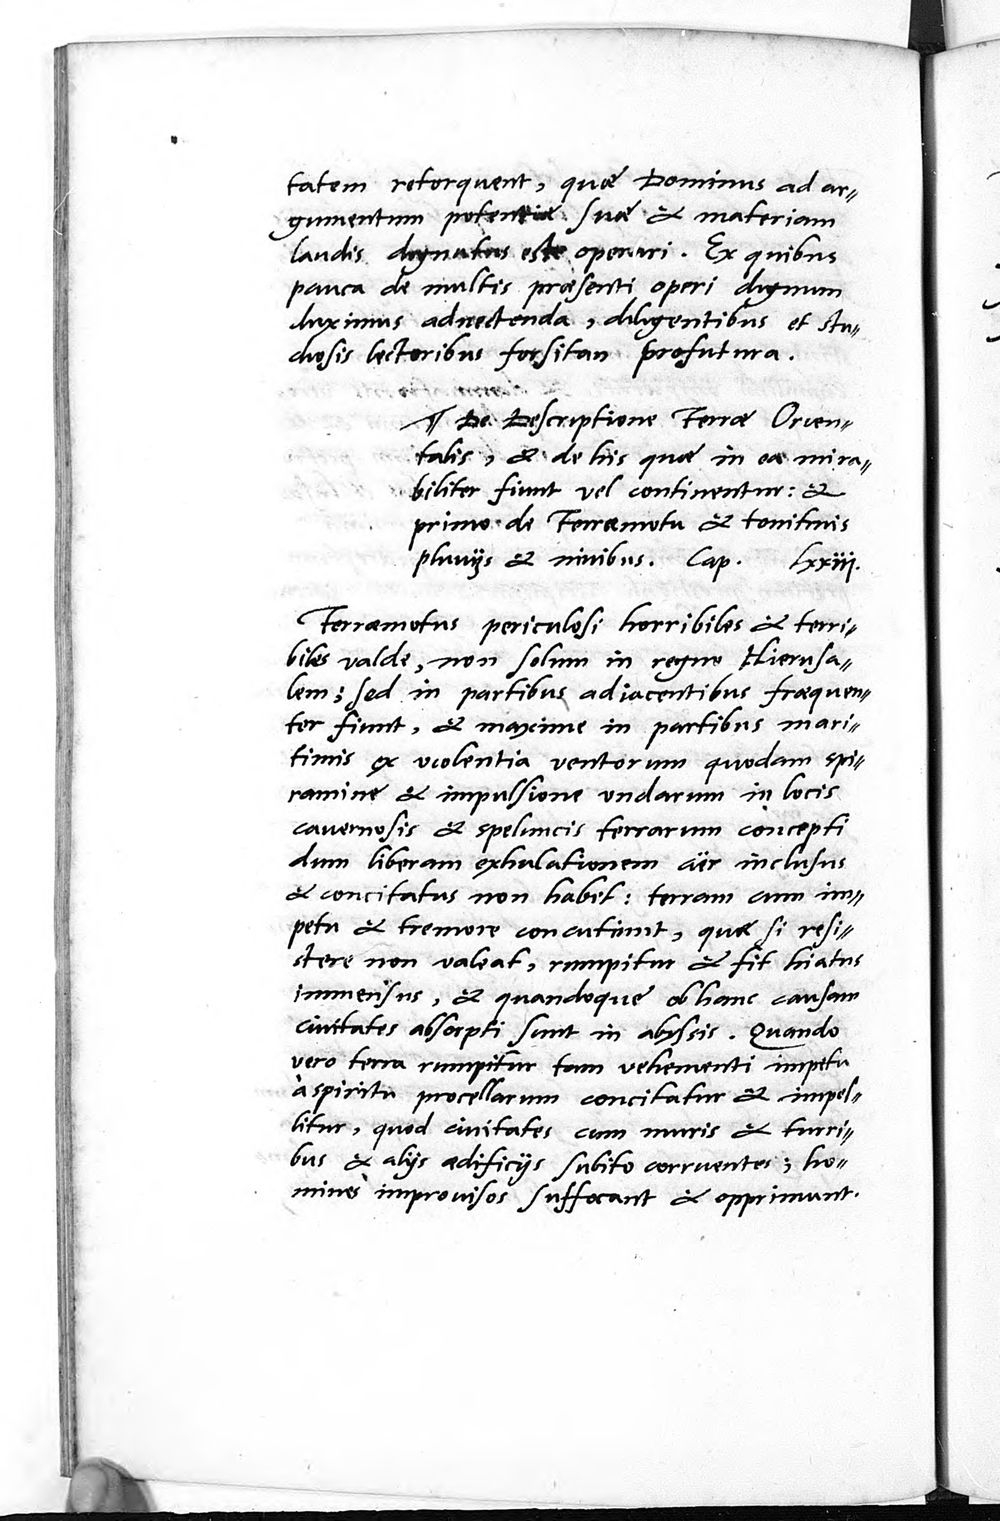 tatem retorquent, quæ Dominus ad ar„
gumentum potentiæ suæ & materiam
laudis dignatus est operari. Ex quibus
pauca de multis præsenti operi dignum
duximus adnectenda, diligentibus et stu„
diosis lectoribus forsitan profutura.
¶ De Descriptione Terræ Orien„
talis, & de hiis quæ in ea mira„
biliter fiunt vel continentur: &
primo de Terræmotu & tonitruis
pluvijs & nivibus. Cap. lxxiij.
Terræmotus periculosi horribiles & terri„
biles valde, non solum in regno Hierusa„
lem; sed in partibus adiacentibus fræquen„
ter fiunt, & maxime in partibus mari„
timis ex violentia ventorum quodam spi„
ramine & impulsione undarum in locis
cavernosis & speluncis terrarum concepti
dum liberam exhalationem aër inclusus
& concitatus non habet: terram cum im„
petu & tremore concutiunt, quæ si resi„
stere non valeat, rumpitur & fit hiatus
immensus, & quandoque ob hanc causam
civitates absorpti sunt in abyssis. Quando
vero terra rumpitur tam vehementi impetu
à spiritu procellarum concitatur & impel„
litur, quod civitates cum muris & turri„
bus & alijs ædificijs subito corruentes; ho„
mines improvisos suffocant & opprimunt.